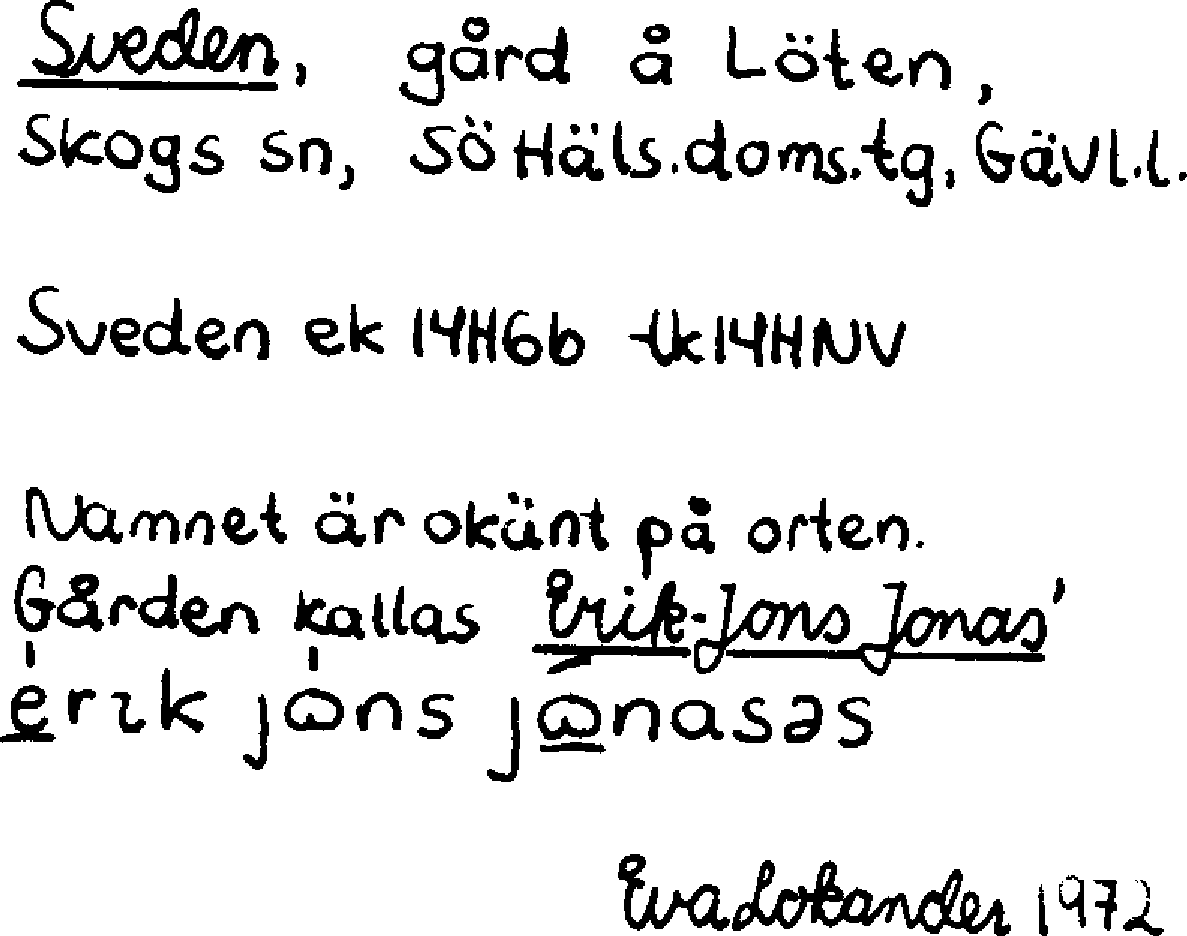 Sveden, gård å Löten,
Skogs sn, Sö Häls.doms.tg, Gävl.l.
Sveden ek 14H6b tk14HNV
Namnet är okänt på orten.
Gården kallas Erik-Jons Jonas'
erık jɷns jɷnasəs
Eva Lokander 1972